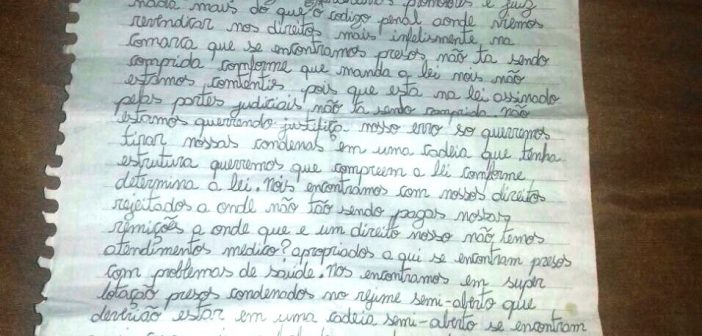 nada mais do que o codigo penal aonde viemos
revendicar nos direitos mais infelismente na
comarca que se encontramos presos não ta sendo
comprida comforme que manda a lei nois não
estamos comtentis, pois que esta na lei assinado
pelas partes judiciais não ta sendo comprida não
estamos querrendo justifiça nosso erro so querremos
tirar nossas condenas em uma cadeia que tenha
estrutura querremos que comprem a lei comforme
determina a lei. Nóis encontramos com nossos direitos
rejeitados a onde não tão sendo pagas nossas
remições a onde que e um direito nosso não temos
atendimentos medico? apropriados a qui se encontram presos
com problemas de saúde. Nos encontramos em super
lotação presos condenados no rejume semi-aberto que
deverião estar em uma cadeia semi-aberto se encontram